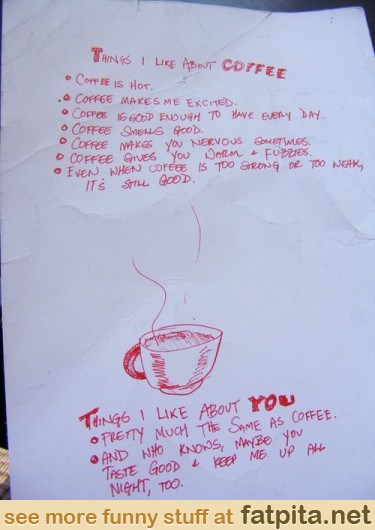 THINGS I LIKE ABOUT COFFEE
• COFFEE IS HOT.
• COFFEE MAKES ME EXCITED.
• COFFEE IS GOOD ENOUGH TO HAVE EVERY DAY.
• COFFEE SMELLS GOOD.
• COFFEE MAKES YOU NERVOUS SOMETIMES.
• COFFEE GIVES YOU WARM & FUZZIES.
• EVEN WHEN COFFEE IS TOO STRONG OR TOO WEAK,
IT'S STILL GOOD.
THINGS I LIKE ABOUT YOU
• PRETTY MUCH THE SAME AS COFFEE.
• AND WHO KNOWS, MAYBE YOU
TASTE GOOD & KEEP ME UP ALL
NIGHT, TOO.
see more funny stuff at fatpita.net